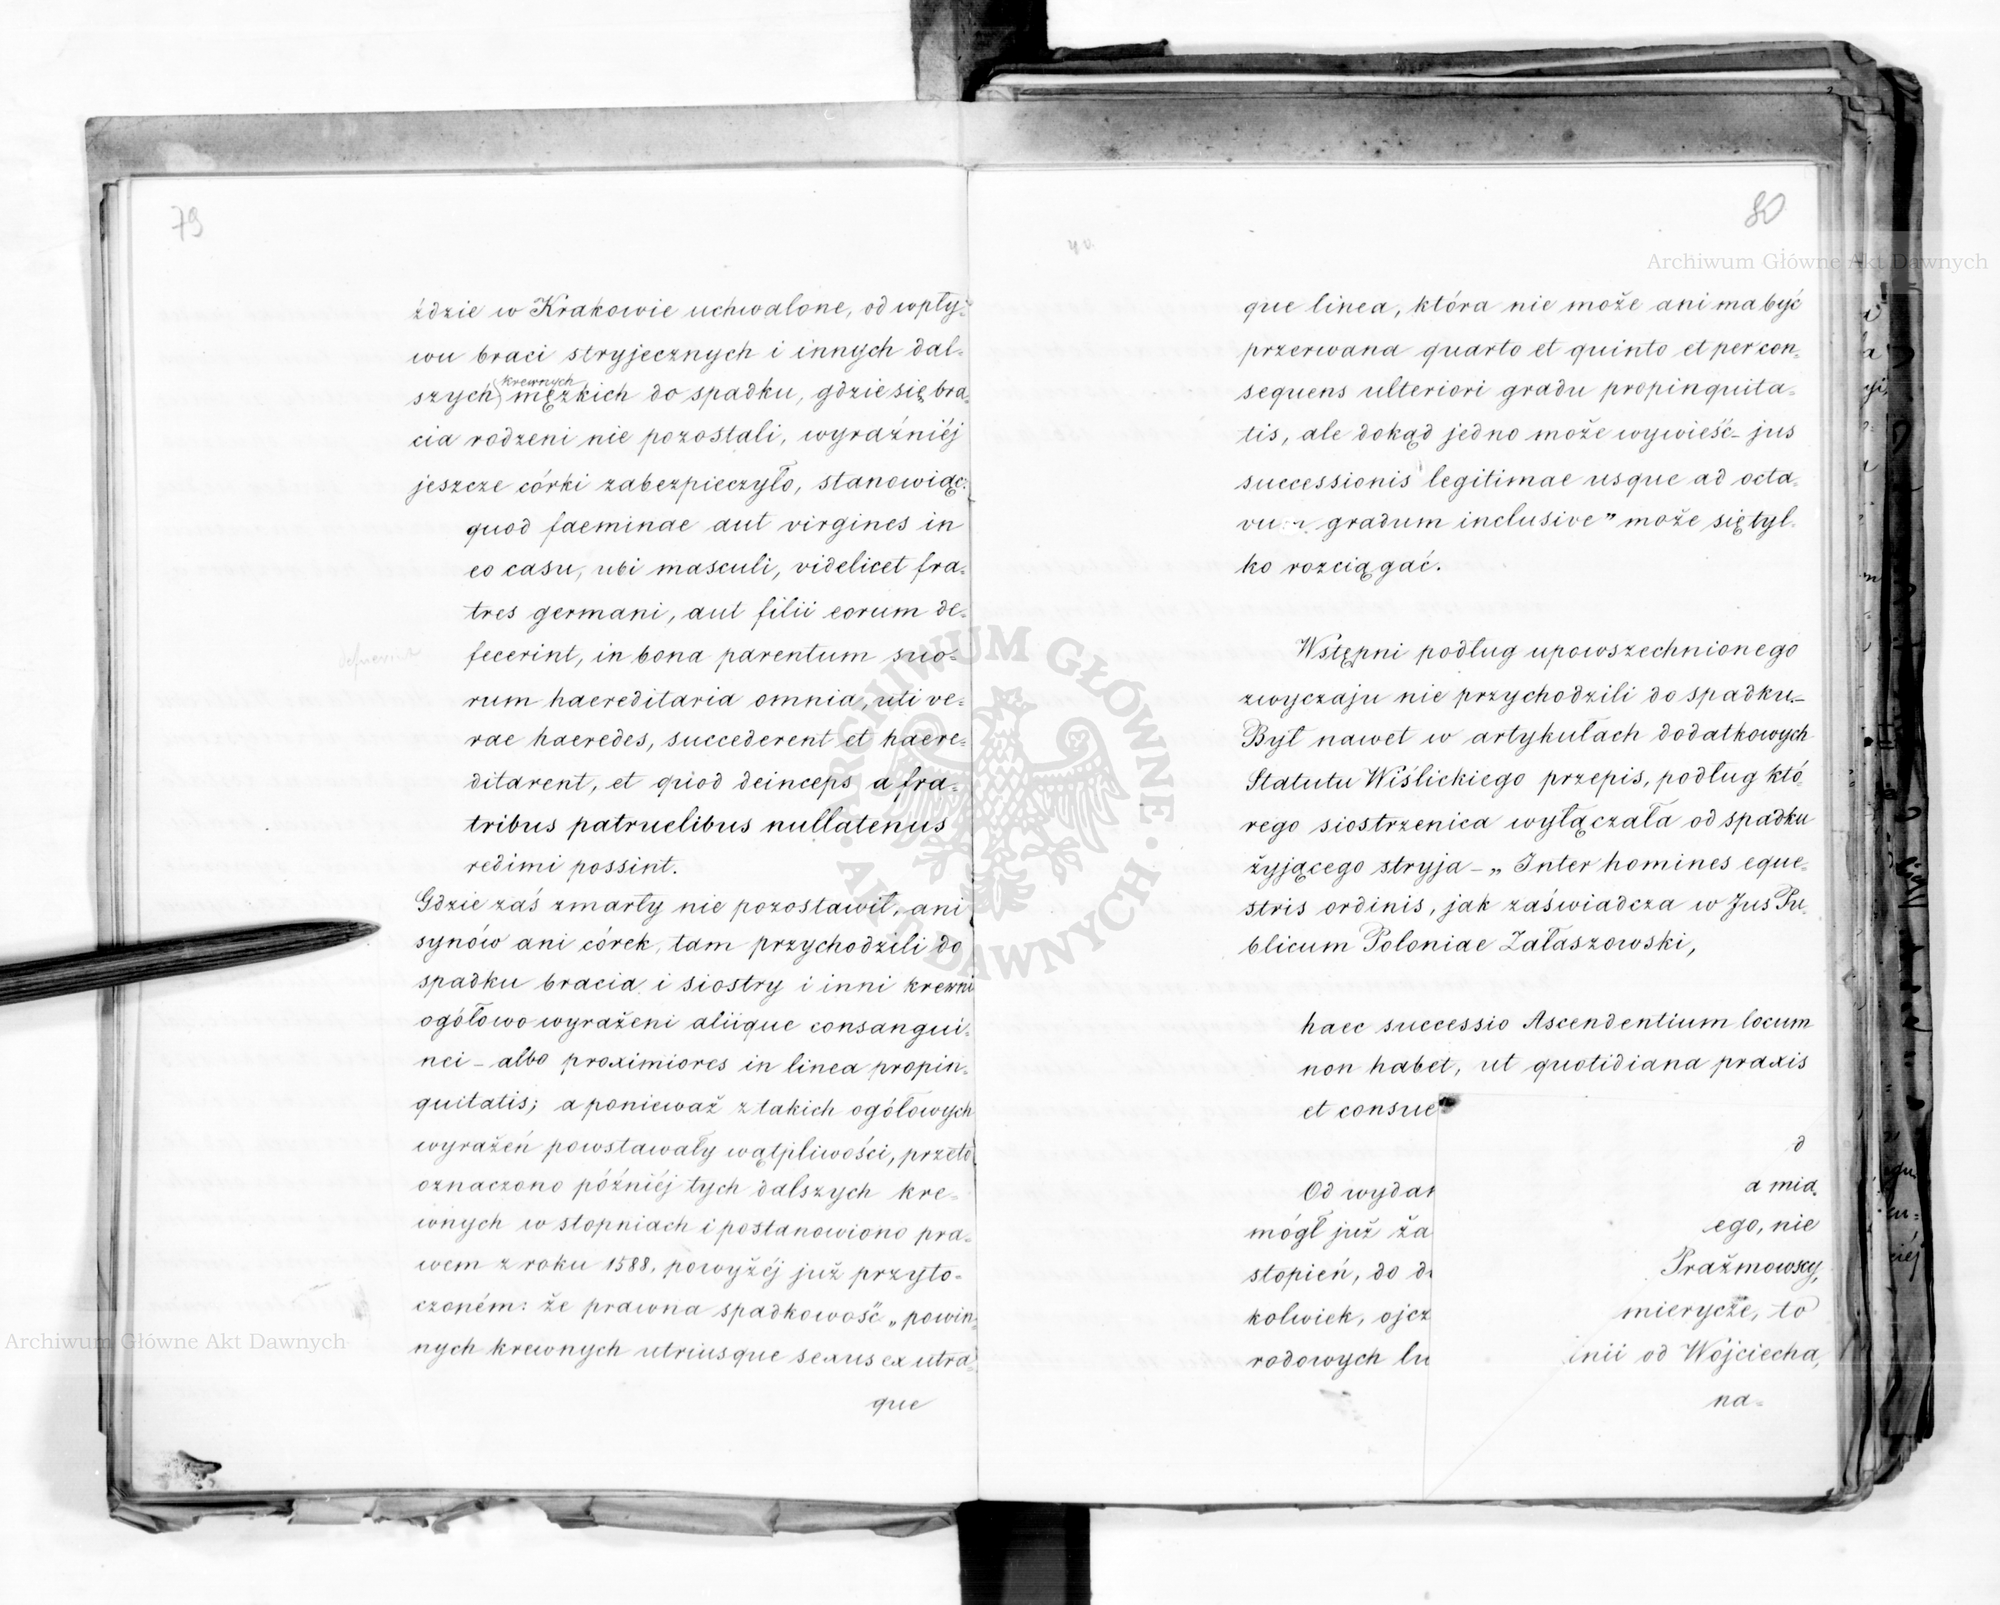 79
ździe w Krakowie uchwalone, od wpły-
wu braci stryjecznych i innych dal-
szych krewnych męzkich do spadku, gdzie się bra-
cia rodzeni nie pozostali, wyraźniéj
jeszcze córki zabezpieczyło, stanowiąc:
quod faeminae aut virgines in
eo casu, ubi masculi, videlicet fra-
tres germani, aut filii eorum de-
fecerint, in bona parentum suo-
rum haereditaria omnia, uti ve-
rae haeredes, succederent et haere-
ditarent, et quod deinceps a fra-
tribus patruelibus nullatenus
redimi possint.
Gdzie zaś zmarły nie pozostawił, ani
synów ani córek, tam przychodzili do
spadku bracia i siostry i inni krewni
ogółowo wyrażeni aliique consangui-
nei – albo proximiores in linea propin-
quitatis; a ponieważ z takich ogółowych
wyrażeń powstawały wątpliwości, przeto
oznaczono późniéj tych dalszych kre-
wnych w stopniach i postanowiono pra-
wem z roku 1588, powyżéj już przyto-
czoném: że prawna spadkowość „powin-
nych krewnych utriusque sexus ex utra-
que
80
que linea, która nie może ani ma być
przerwana quarto et quinto et per con-
sequens ulteriori gradu propinquita-
tis, ale dokąd jedno może wywieść – jus
successionis legitimae usque ad octa-
vum gradum inclusive" może się tyl-
ko rozciągać.
Wstępni podług upowszechnionego
zwyczaju nie przychodzili do spadku.–
Był nawet w artykułach dodatkowych
Statutu Wiślickiego przepis, podług któ-
rego siostrzenica wyłączała od spadku
żyjącego stryja – „Inter homines eque-
stris ordinis, jak zaświadcza w Jus Pu-
blicum Poloniae Załaszowski,
haec successio Ascendentium locum
non habet, ut quotidiana praxis
et consue
d
Od wydan a mia-
mógł już ża ego, nie
stopień, do d Prażmowscy,
kolwiek, ojcz mierycze, to
rodowych lu inii od Wojciecha,
na-
Archiwum Główne Akt Dawnych
Archiwum Główne Akt Dawnych
ARCHIWUM GŁÓWNE
AKT DAWNYCH